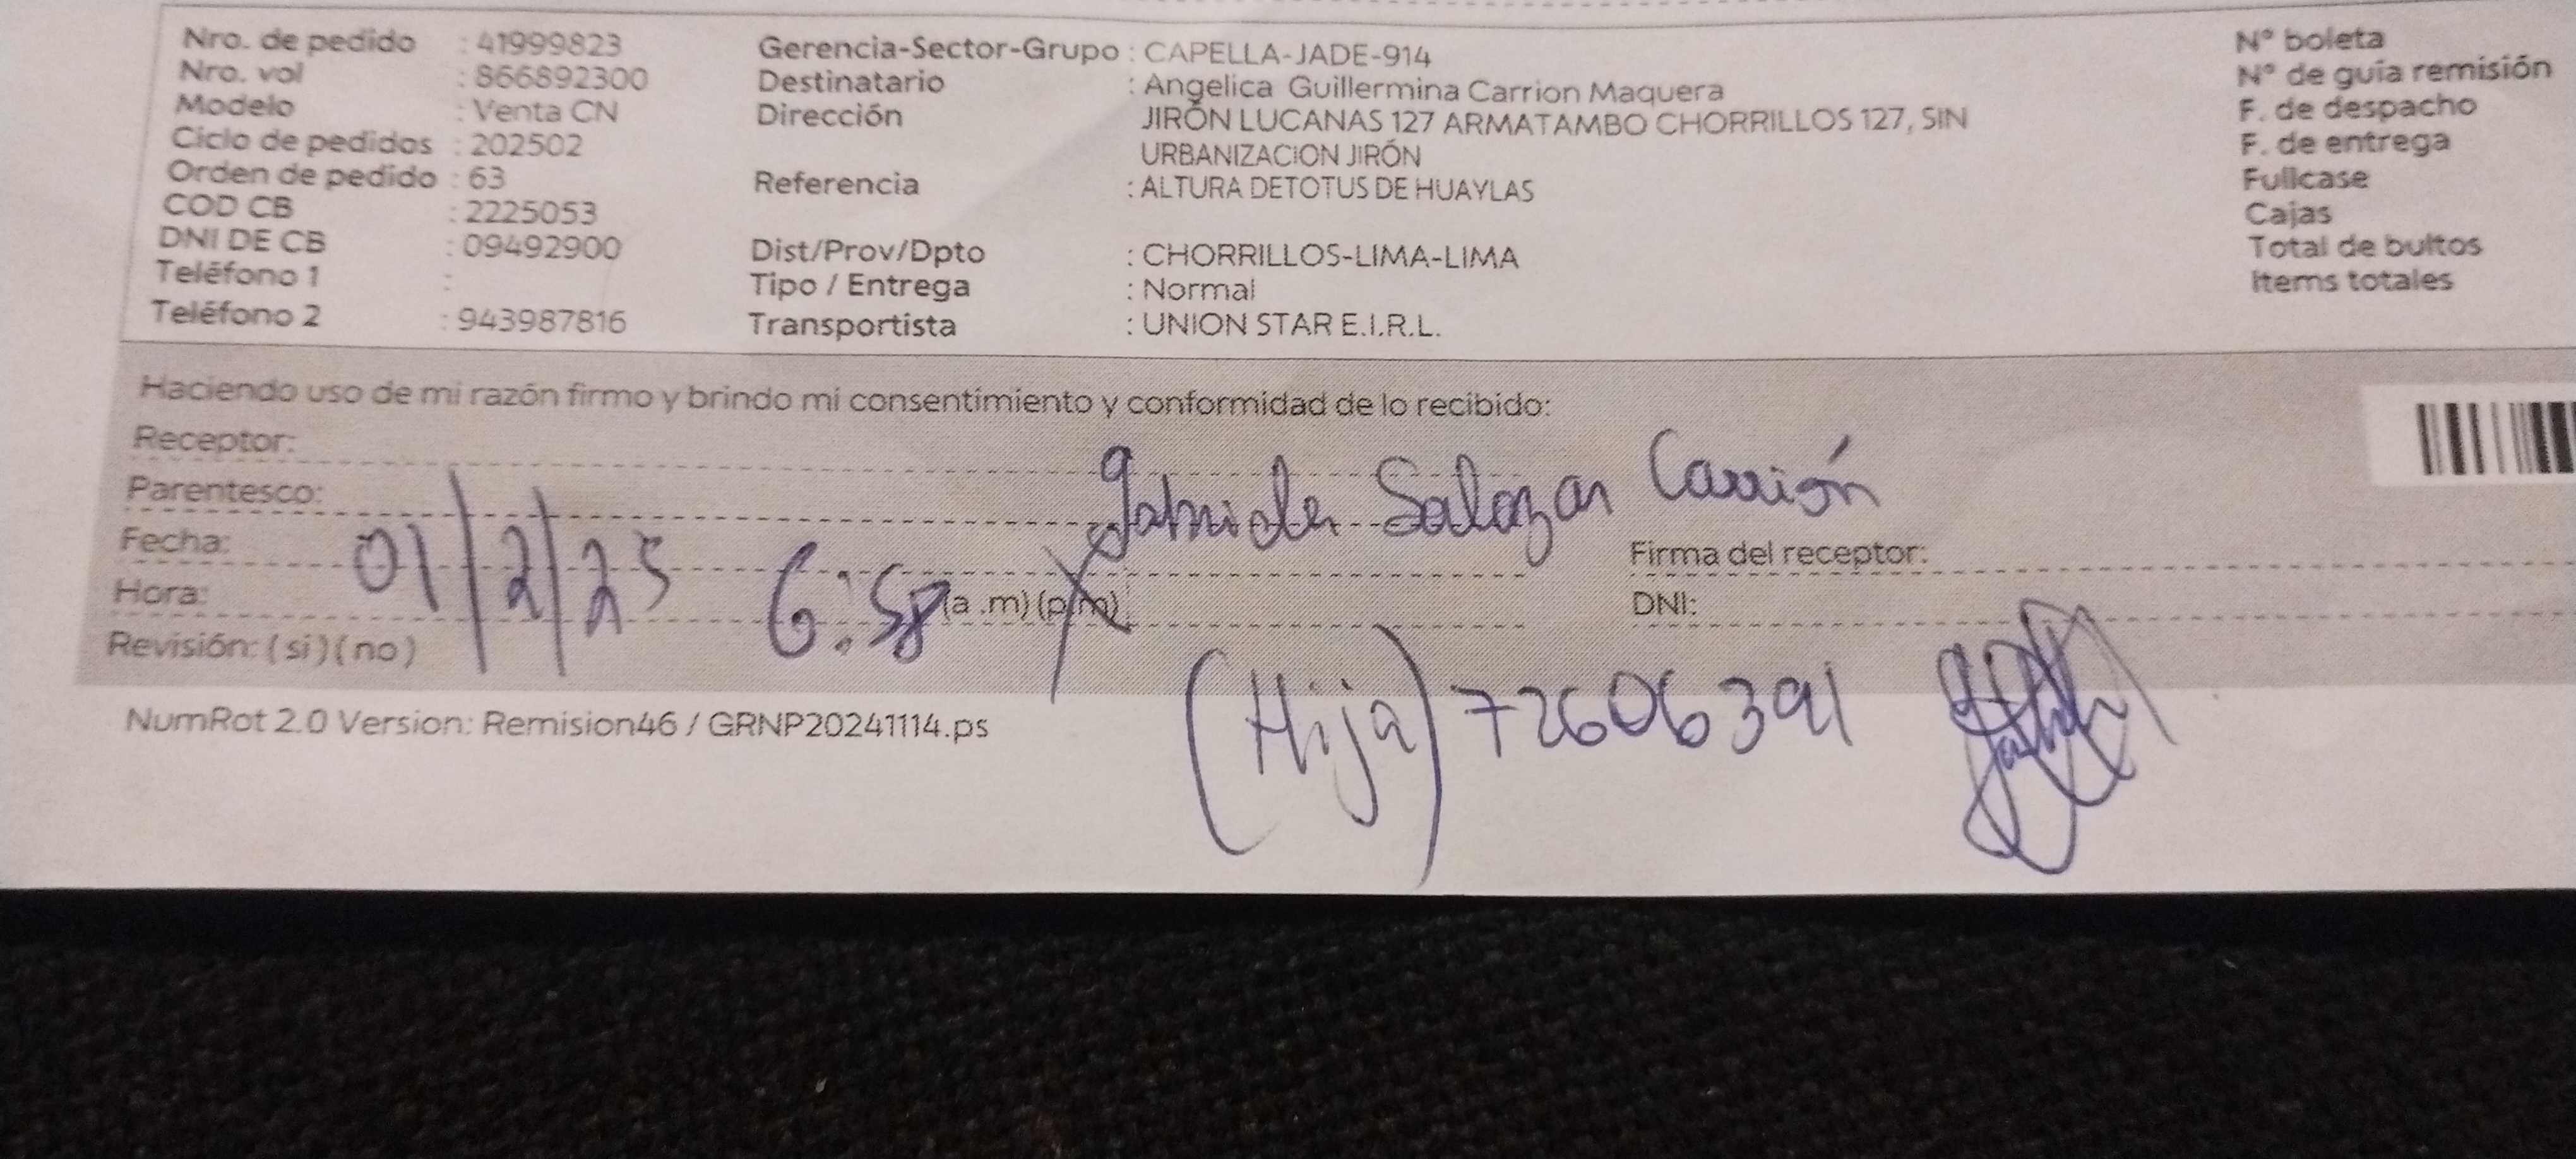 Nro. de pedido : 41999823 Gerencia-Sector-Grupo : CAPELLA-JADE-914 N° boleta
Nro. vol : 866892300 Destinatario : Angelica Guillermina Carrion Maquera N° de guía remisión
Modelo : Venta CN Dirección JIRÓN LUCANAS 127 ARMATAMBO CHORRILLOS 127, SIN F. de despacho
Ciclo de pedidos : 202502 URBANIZACION JIRÓN F. de entrega
Orden de pedido : 63 Referencia : ALTURA DETOTUS DE HUAYLAS Fullcase
COD CB : 2225053 Cajas
DNI DE CB : 09492900 Dist/Prov/Dpto : CHORRILLOS-LIMA-LIMA Total de bultos
Teléfono 1 : Tipo / Entrega : Normal Items totales
Teléfono 2 : 943987816 Transportista : UNION STAR E.I.R.L.
Haciendo uso de mi razón firmo y brindo mi consentimiento y conformidad de lo recibido:
Receptor:
Parentesco: Gabriela Salazar Carrión
Fecha: 01/2/25 Firma del receptor:
Hora: 6:58 (a .m) (p.m) DNI:
Revisión: ( si ) ( no )
(Hija) 72606391
NumRot 2.0 Version: Remision46 / GRNP20241114.ps